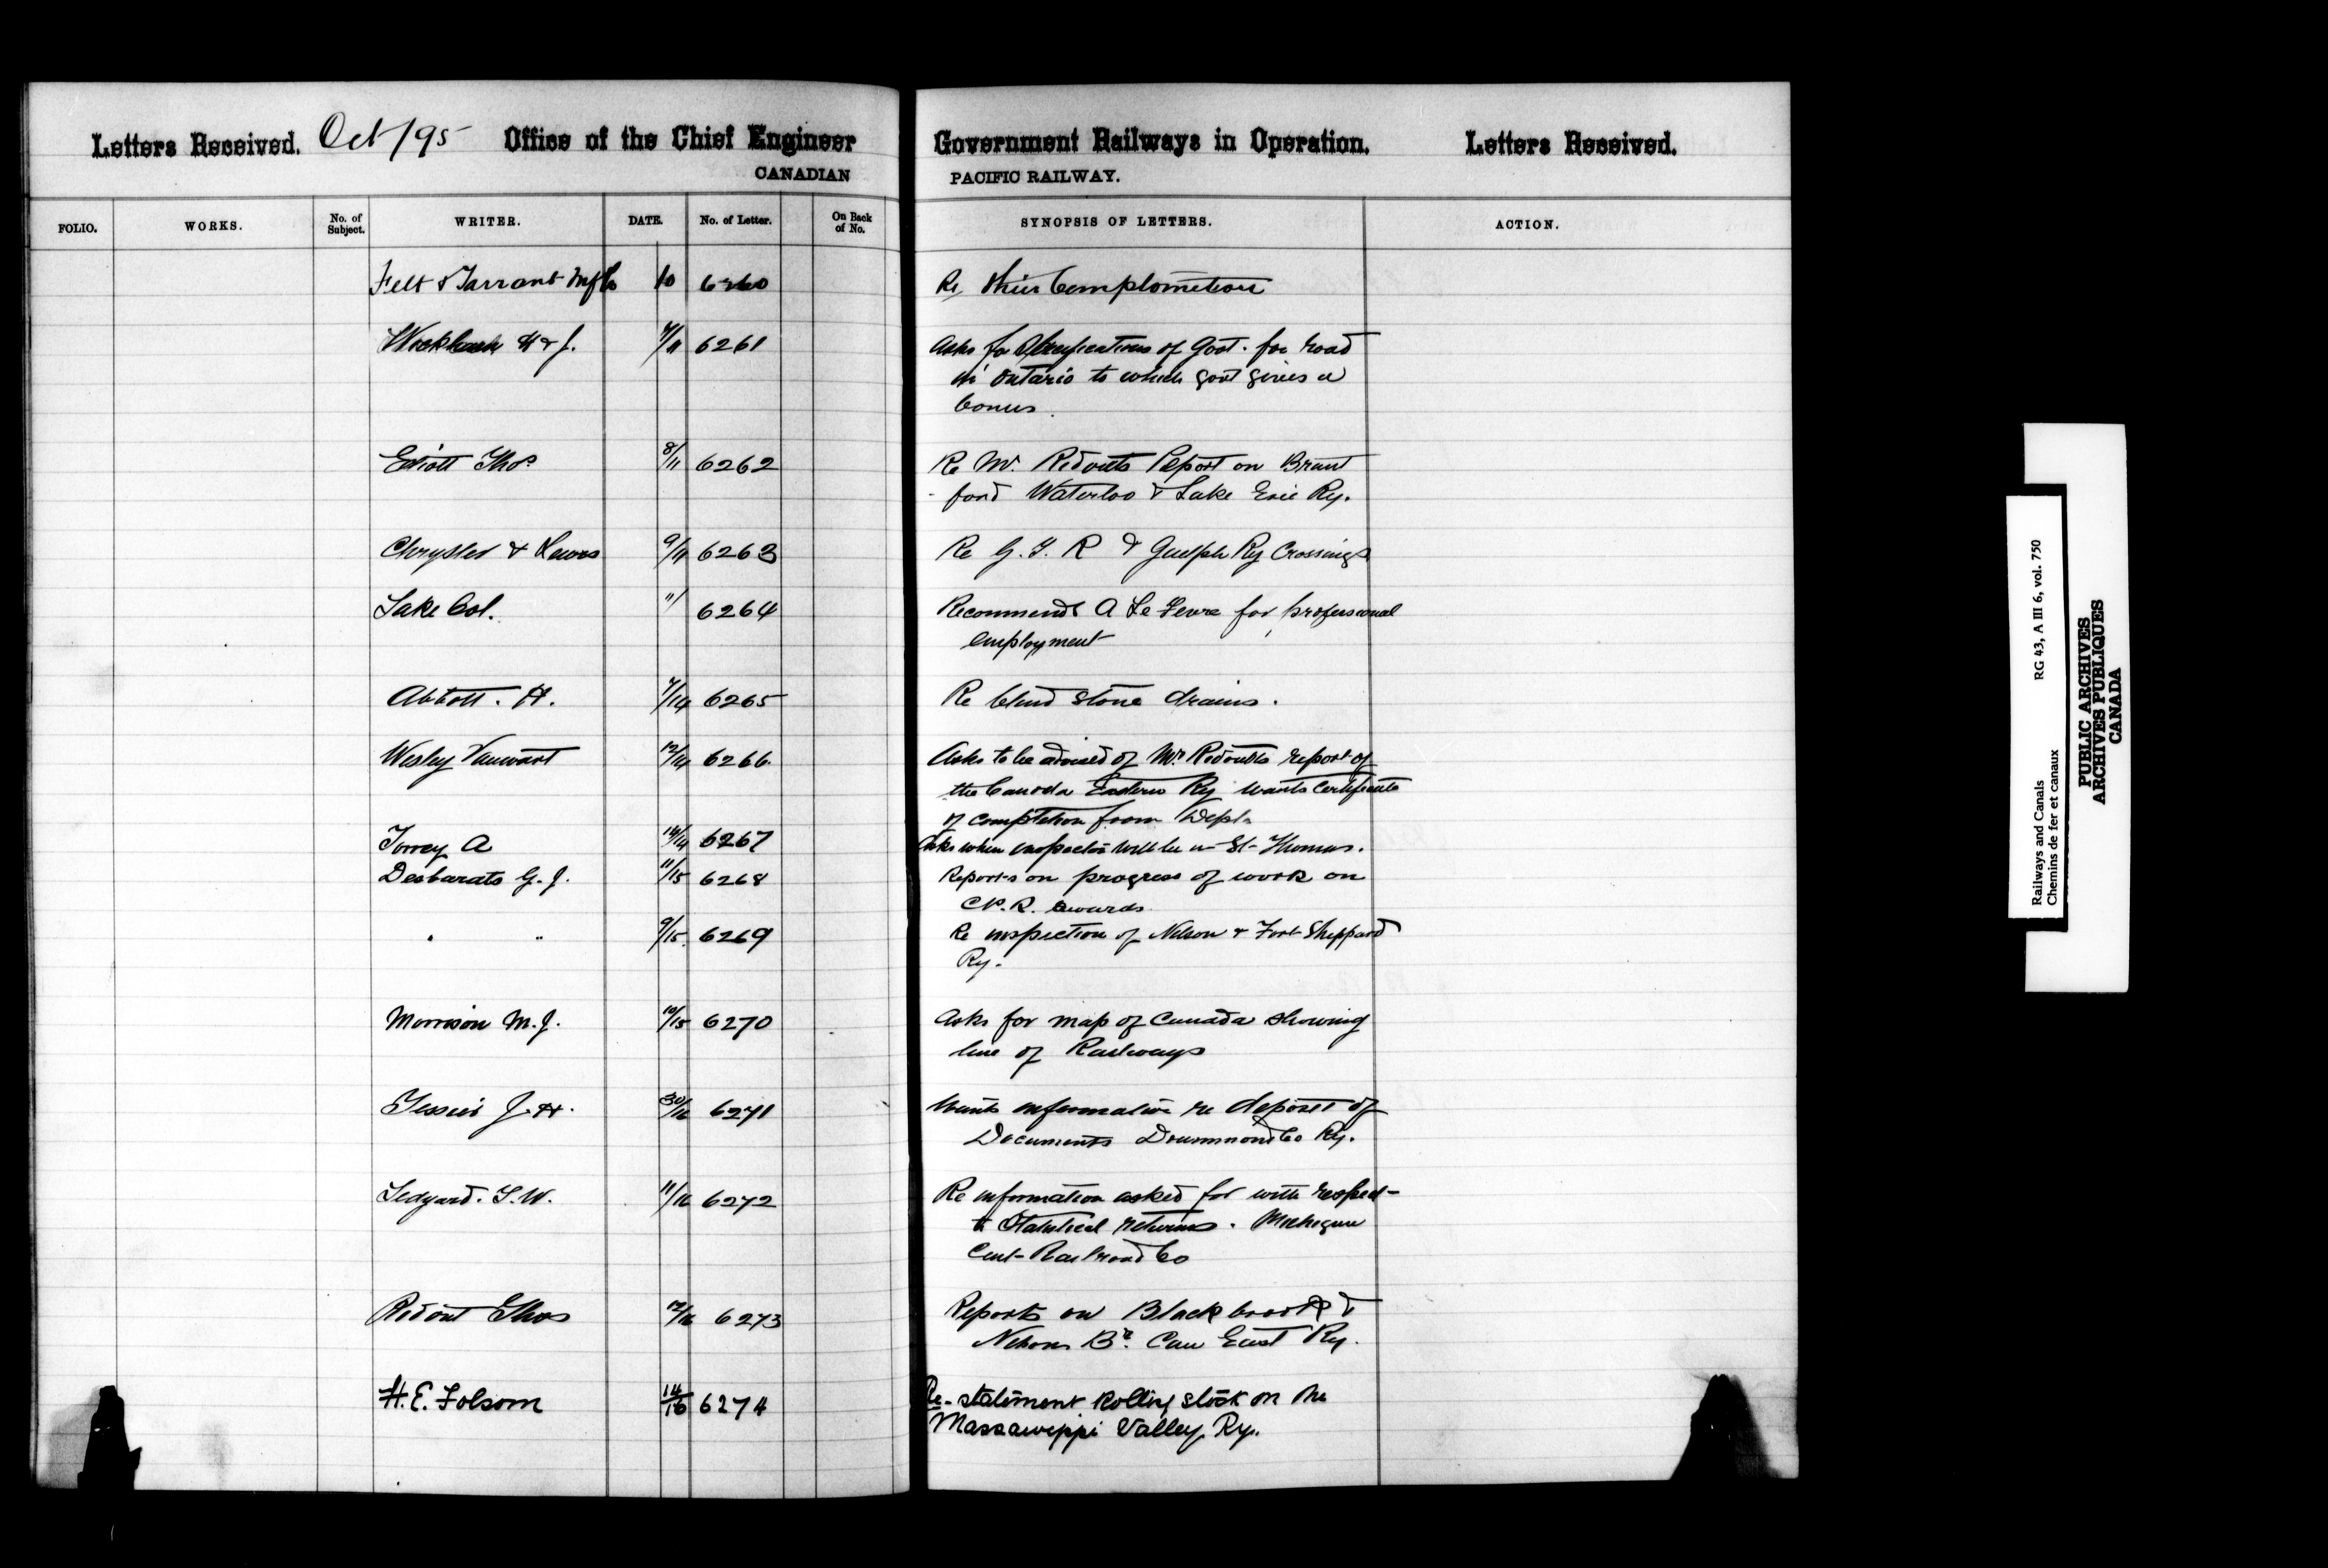 Letters Received. Oct/95 Office of the Chief Engineer Government Railways in Operation. Letters Received.
CANADIAN PACIFIC RAILWAY.
FOLIO. WORKS. No. of Subject. WRITER. DATE. No. of Letter. On Back of No. SYNOPSIS OF LETTERS. ACTION.
Felt & Tarrant Mfg Co 10 6260 Re their Comptometers
H & J. 7/11 6261 Asks for Specifications of Govt. for road
in Ontario to which govt gives a
bonus.
Elliott Thos 8/11 6262 Re Mr. Ridouts Report on Brant
-ford Waterloo & Lake Erie Ry.
Chrysler & Lewis 9/11 6263 Re G. T. R & Guelph Ry Crossings
Lake Col. 11/ 6264 Recommends A Le Fevre for professional
employment
Abbott. H. 7/14 6265 Re blind stone drains.
Wesley Vanwart 12/14 6266 Asks to be advised of Mr Ridouts report of
the Canada Eastern Ry wants certificate
of completion from Dept.
Torrey A 14/14 6267 Asks when inspector will be in St Thomas.
Desbarats G. J. 11/15 6268 Reports on progress of work on
C.P.R. awards
" " 9/15 6269 Re inspection of Nelson & Fort Sheppard
Ry.
Morrison M. J. 10/15 6270 Asks for map of Canada showing
line of Railways
Tessier J. H. 30/16 6271 Wants information re deposit of
Documents Drummond Co Ry.
Ledyard. T. W. 11/16 6272 Re information asked for with respect
to Statistical returns. Michigan
Cent Railroad Co
Ridout Thos 12/16 6273 Reports on Black brook &
Nelson Br. Can East Ry.
H. E. Folsom 14/16 6274 Re-statement Rolling stock on the
Massawippi Valley Ry.
Railways and Canals RG 43, A III 6, vol. 750
Chemins de fer et canaux
PUBLIC ARCHIVES
ARCHIVES PUBLIQUES
CANADA